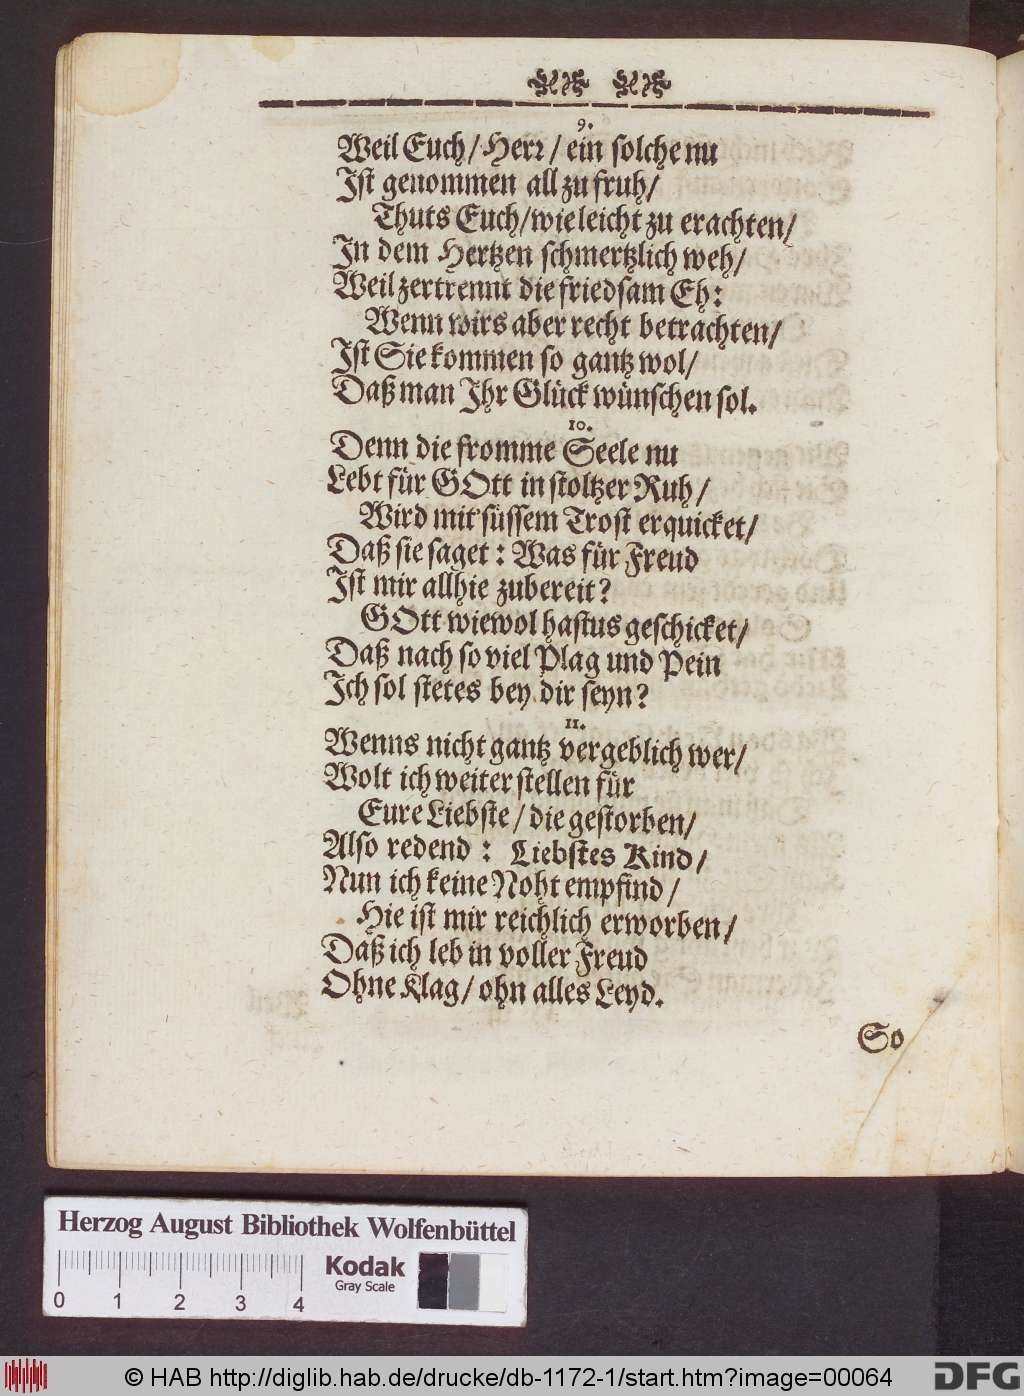 9.
Weil Euch/ Herr / ein solche nu
Ist genommen all zu fruh/
Thuts Euch/ wie leicht zu erachten/
In dem Hertzen schmertzlich weh/
Weil zertrennt die friedsam Eh:
Wenn wirs aber recht betrachten/
Ist Sie kommen so gantz wol/
Daß man Ihr Glück wünschen sol.
10.
Denn die fromme Seele nu
Lebt für GOtt in stoltzer Ruh/
Wird mit süssem Trost erquicket/
Daß sie saget: Was für Freud
Ist mir allhie zubereit?
GOtt wie wol hastus geschicket/
Daß nach so viel Plag und Pein
Ich sol stetes bey dir seyn?
11.
Wenns nicht gantz vergeblich wer/
Wolt ich weiter stellen für
Eure Liebste / die gestorben/
Also redend : Liebstes Kind/
Nun ich keine Noht empfind/
Hie ist mir reichlich erworben/
Daß ich leb in voller Freud
Ohne Klag/ ohn alles Leyd.
So
Herzog August Bibliothek Wolfenbüttel
Kodak
Gray Scale
0 1 2 3 4
© HAB http://diglib.hab.de/drucke/db-1172-1/start.htm?image=00064
DFG